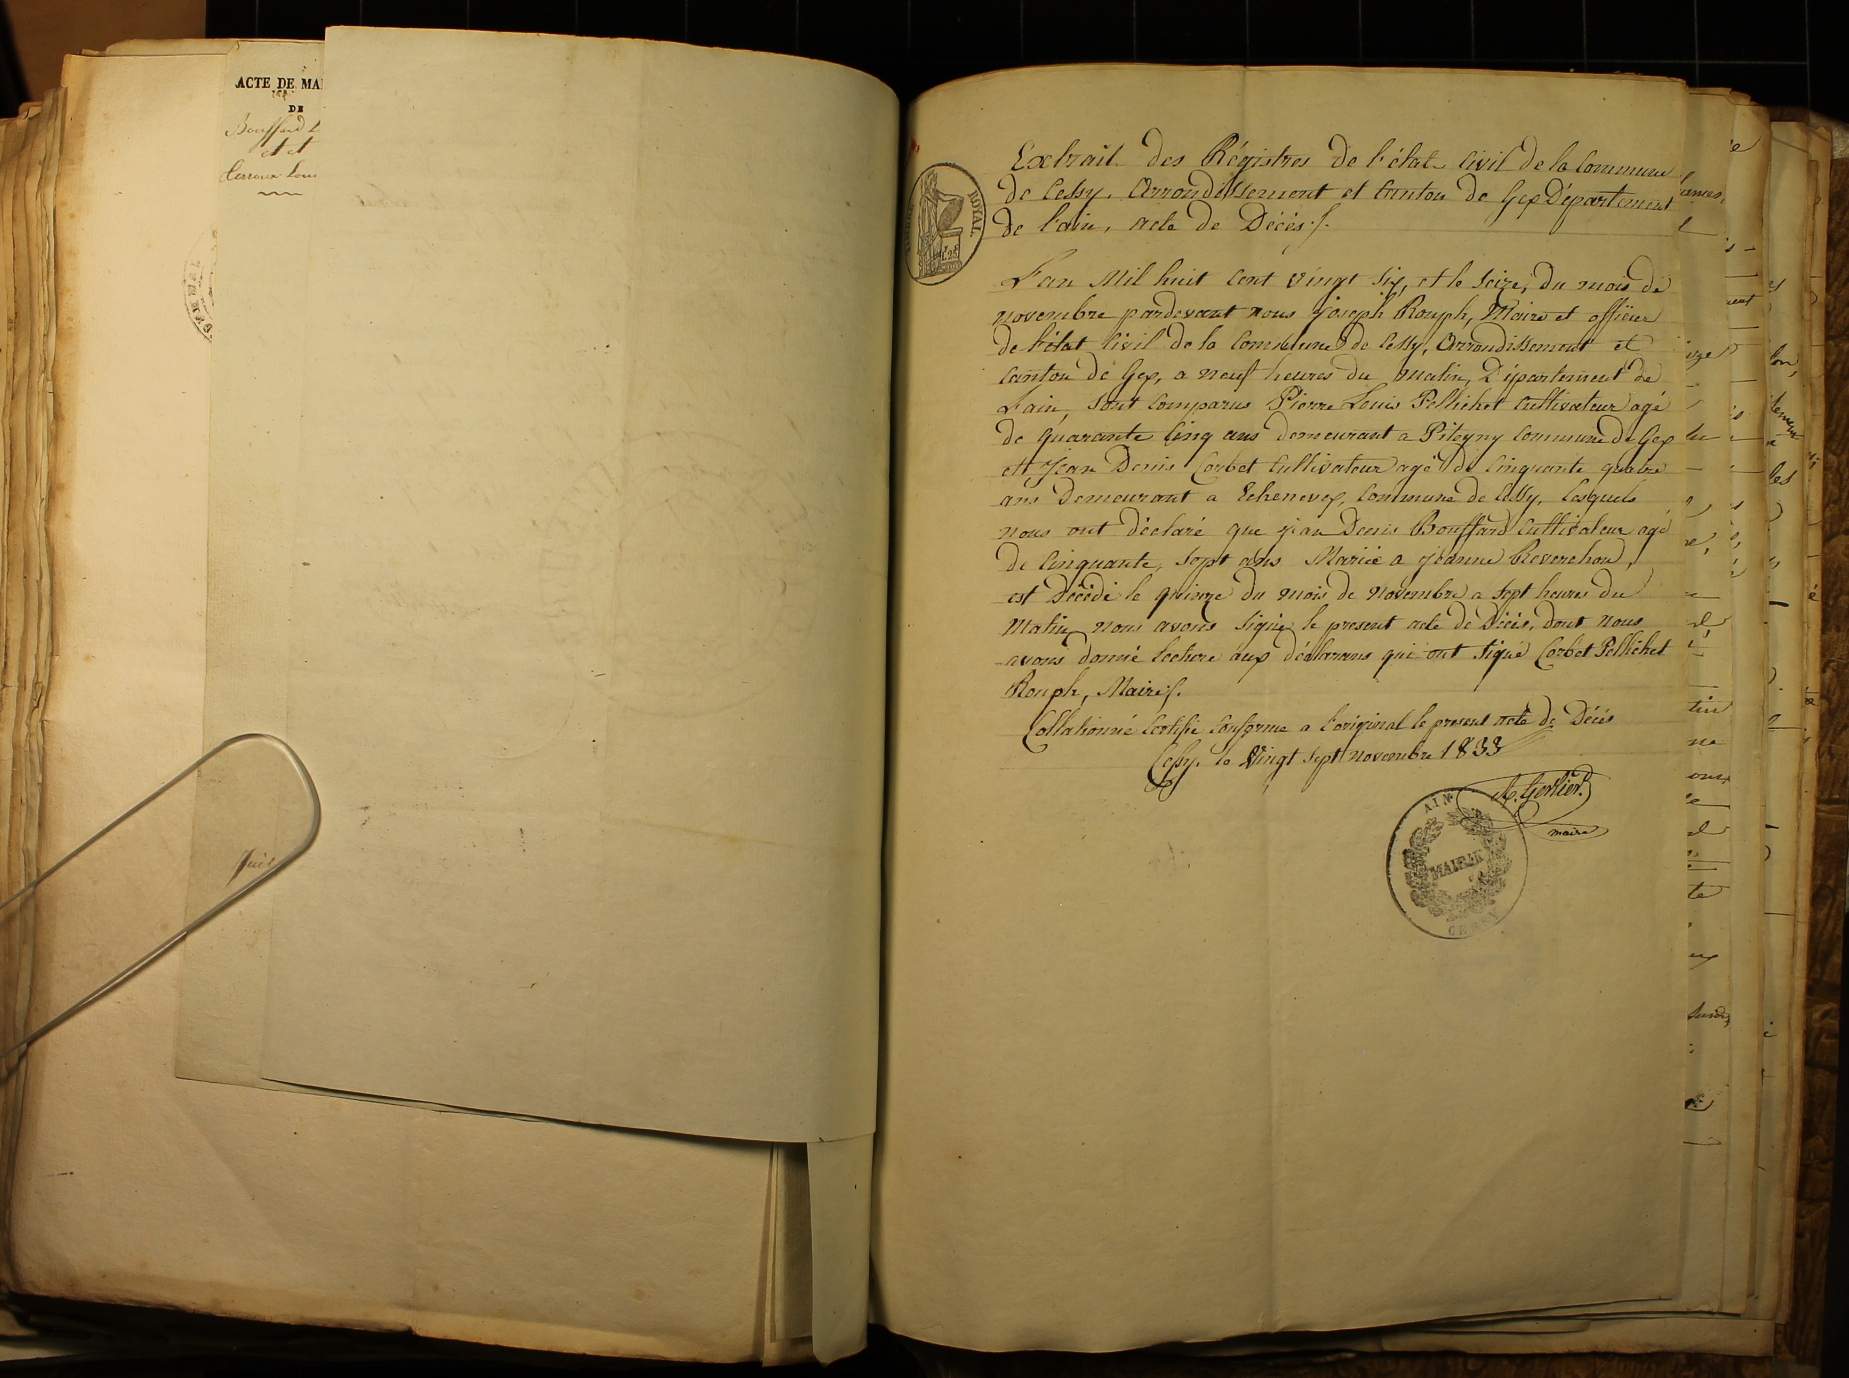 ACTE DE MA
DE
Bouffard
et et
Extrait des Régistres de l'état Civil de la Commune
de Cessy, Arrondissement et Canton de Gex Département
de l'ain, acte de Décés ./.
ROYAL
L'an Mil huit Cent vingt six, et le seize, du mois de
novembre pardevant nous Joseph Rouph, Maire et officier
de l'état Civil de la Commune de Cessy, Arrondissement et
Canton de Gex, a neuf heures du matin, Département de
L'ain, sont Comparus Pierre Louis Pellichet Cultivateur agé
de quarante Cinq ans demeurant a Piteyny Commune de Gex
et Jean Denis Corbet Cultivateur agé de Cinquante quatre
ans demeurant a Echenevex, Commune de Cessy, Lesquels
nous ont déclaré que jean Denis Bouffard Cultivateur agé
de Cinquante, sept ans Marié a jeanne Reverchon,
est Décédé le quinze du mois de novembre a sept heures du
Matin, nous avons signé le present acte de Décés, dont nous
avons donné lecture aux déclarans qui ont signé Corbet Pellichet
Rouph, Maire ./.
Collationné Certifié Conforme a l'original le present acte de Décés
Cessy, le Vingt sept novembre 1833
maire
AIN
MAIRIE